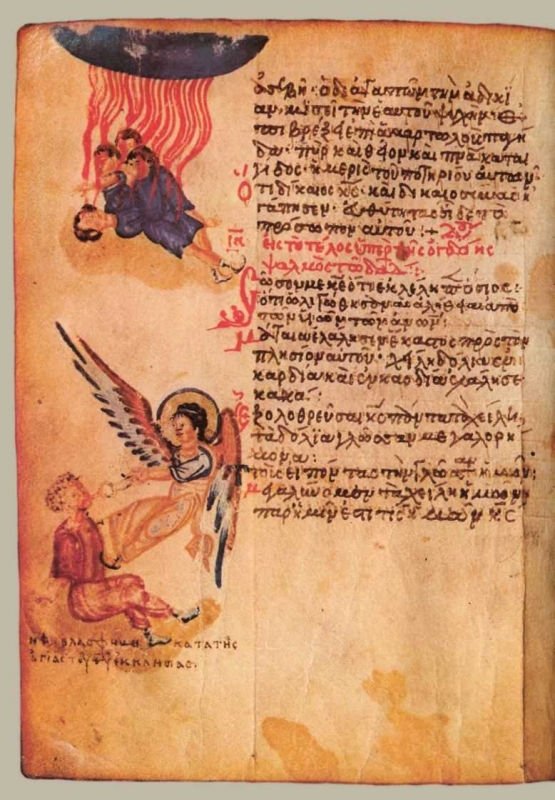 ἀσεβῆ· ὁ δὲ ἀγαπῶν τὴν ἀδικί
αν, μισεῖ τὴν ἑαυτοῦ ψυχήν· ἐ
πιβρέξει ἐπὶ ἁμαρτωλοὺς παγί
δας· πῦρ καὶ θεῖον καὶ πνα καται
γίδος· ἡ μερὶς τοῦ ποτηρίου αὐτῶν·
Ὅτι δίκαιος κς καὶ δικαιοσύνας ἠ
γάπησεν· εὐθύτητας εἶδεν τὸ
πρόσωπον αὐτοῦ :+
ΙΑ εἰς τὸ τέλος ὑπὲρ τῆς ὀγδόης
ψαλμὸς τῷ δαδ :
Σῶσον με κε ὅτι ἐκλέλοιπεν ὅσιος·
ὅτι ὠλιγώθησαν αἱ ἀλήθειαι ἀπὸ
τῶν υἱῶν τῶν ἀνων :
Μάταια ἐλάλησεν ἕκαστος πρὸς τὸν
πλησίον αὐτοῦ· χείλη δόλια ἐν
καρδίᾳ καὶ ἐν καρδίᾳ ἐλάλησε
κακά :
Ἐξολοθρεύσαι κς πάντα τὰ χείλη
τὰ δόλια γλῶσσαν μεγαλορή
μονα :
Τοὺς εἰπόντας τὴν γλῶσσαν ἡμῶν
μεγαλυνοῦμεν τὰ χείλη ἡμῶν
παρ' ἡμῖν ἐστι τίς ἡμῶν κς
ΒΛΑΣΦΗΜ ΚΑΤΑ ΤΗΣ
ΑΓΙΑΣ ΤΟΥ ΘΥ ΕΚΚΛΗΣΙΑΣ.